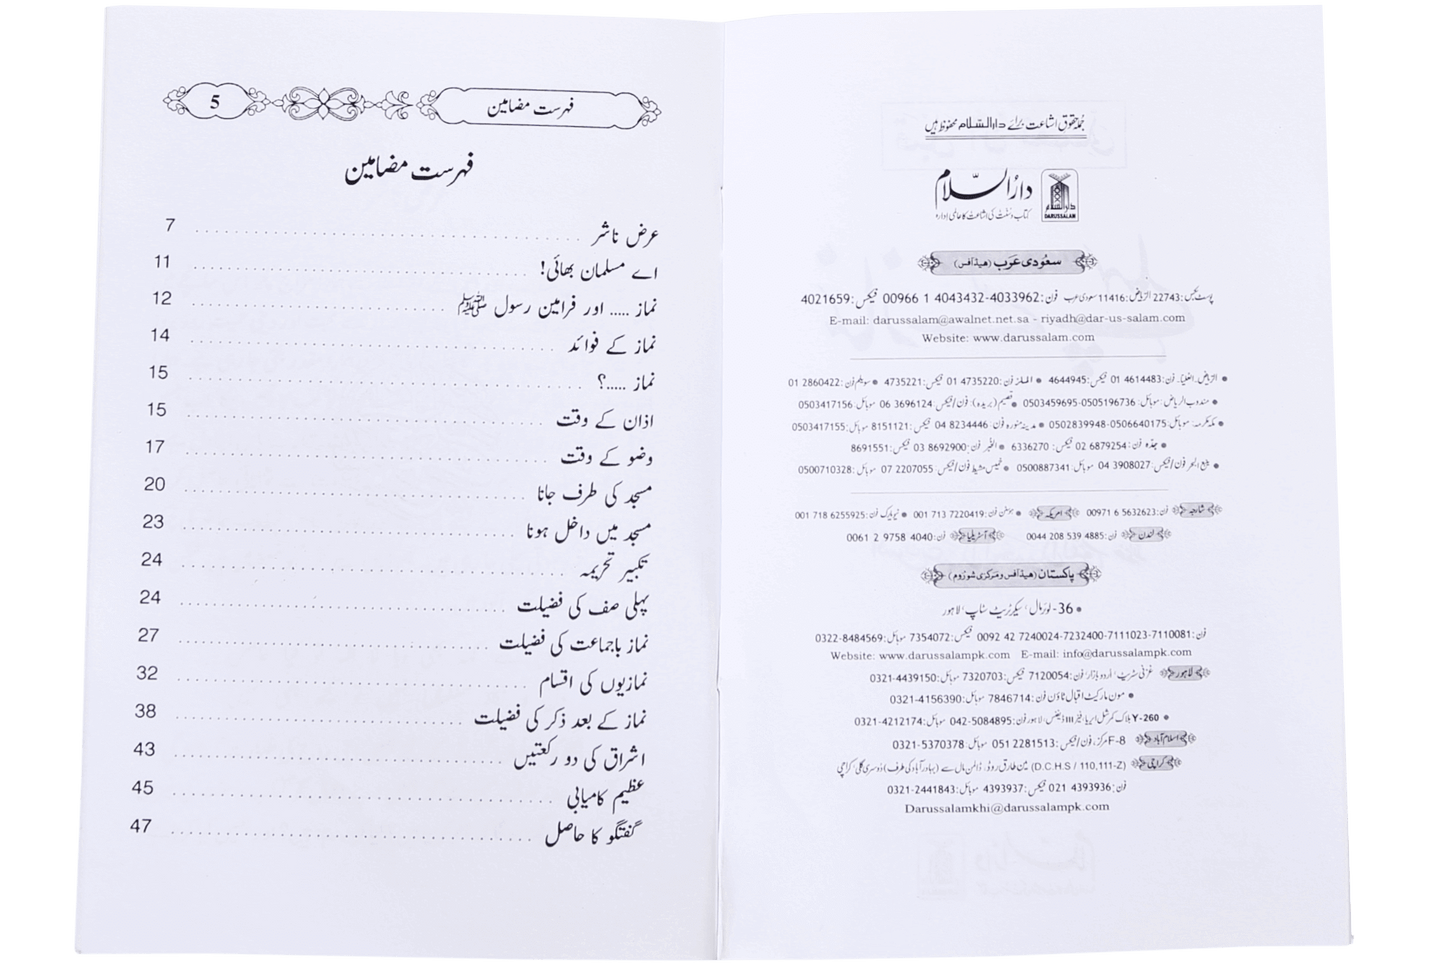 جملہ حقوق اشاعت برائے دارالسّلام محفوظ ہیں
دارالسّلام
کتاب و سنت کی اشاعت کا عالمی ادارہ
دارالسلام
DARUSSALAM
سعودی عرب (ھیڈ آفس)
پوسٹ بکس: 22743 الریاض: 11416 سعودی عرب فون: 4033962-4043432 1 00966 فیکس: 4021659
E-mail: darussalam@awalnet.net.sa - riyadh@dar-us-salam.com
Website: www.darussalam.com
• الریاض۔ العلیا۔ فون: 4614483 01 فیکس: 4644945 • الملز فون: 4735220 01 فیکس: 4735221 • سویلم فون: 2860422 01
• مندوب الریاض: موبائل: 0505196736-0503459695 • قصیم (بریدہ): فون/فیکس: 3696124 06 موبائل: 0503417156
• مکہ مکرمہ: موبائل: 0506640175-0502839948 • مدینہ منورہ فون: 8234446 04 فیکس: 8151121 موبائل: 0503417155
• جدہ فون: 6879254 02 فیکس: 6336270 • الخبر فون: 8692900 03 فیکس: 8691551
• ینبع البحر فون/فیکس: 3908027 04 موبائل 0500887341 • خمیس مشیط فون/فیکس: 2207055 07 موبائل: 0500710328
شارجہ فون: 5632623 6 00971 امریکہ • ہوسٹن فون: 7220419 713 001 • نیویارک فون: 6255925 718 001
لندن فون: 4885 539 208 0044 آسٹریلیا فون: 4040 9758 2 0061
پاکستان (ھیڈ آفس و مرکزی شوروم)
• 36- لوئر مال، سیکرٹریٹ سٹاپ، لاہور
فون: 7110081-7111023-7232400-7240024 42 0092 فیکس: 7354072 موبائل: 0322-8484569
Website: www.darussalampk.com E-mail: info@darussalampk.com
لاہور غزنی سٹریٹ، اردو بازار، فون: 7120054 فیکس: 7320703 موبائل: 0321-4439150
• مون مارکیٹ اقبال ٹاؤن فون: 7846714 موبائل: 0321-4156390
• Y-260 بلاک کمرشل ایریا، فیز III ڈیفنس، لاہور فون: 042-5084895 موبائل: 0321-4212174
اسلام آباد F-8 مرکز، فون/فیکس: 2281513 051 موبائل: 0321-5370378
کراچی (D.C.H.S / 110,111-Z) مین طارق روڈ، ڈالمن مال سے (بہادر آباد کی طرف) دوسری گلی کراچی
فون: 4393936 021 فیکس: 4393937 موبائل: 0321-2441843
Darussalamkhi@darussalampk.com
فہرست مضامین 5
فہرست مضامین
عرض ناشر 7
اے مسلمان بھائی! 11
نماز ..... اور فرامین رسول ﷺ 12
نماز کے فوائد 14
نماز .....؟ 15
اذان کے وقت 15
وضو کے وقت 17
مسجد کی طرف جانا 20
مسجد میں داخل ہونا 23
تکبیر تحریمہ 24
پہلی صف کی فضیلت 24
نماز باجماعت کی فضیلت 27
نمازیوں کی اقسام 32
نماز کے بعد ذکر کی فضیلت 38
اشراق کی دو رکعتیں 43
عظیم کامیابی 45
گفتگو کا حاصل 47